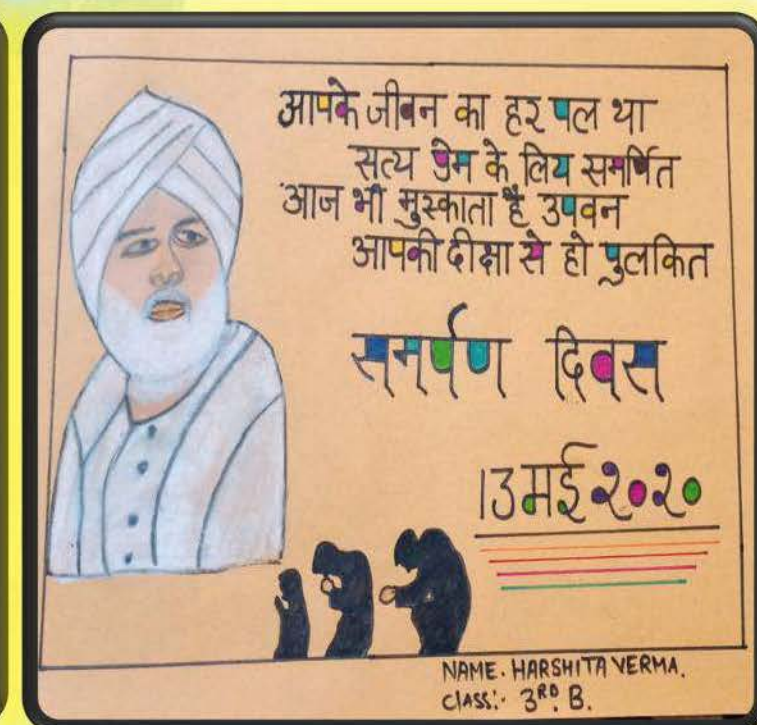 आपके जीवन का हर पल था
सत्य प्रेम के लिय समर्पित
आज भी मुस्काता है उपवन
आपकी दीक्षा से हो पुलकित
समर्पण दिवस
13 मई २०२०
NAME. HARSHITA VERMA.
CLASS:- 3RD. B.